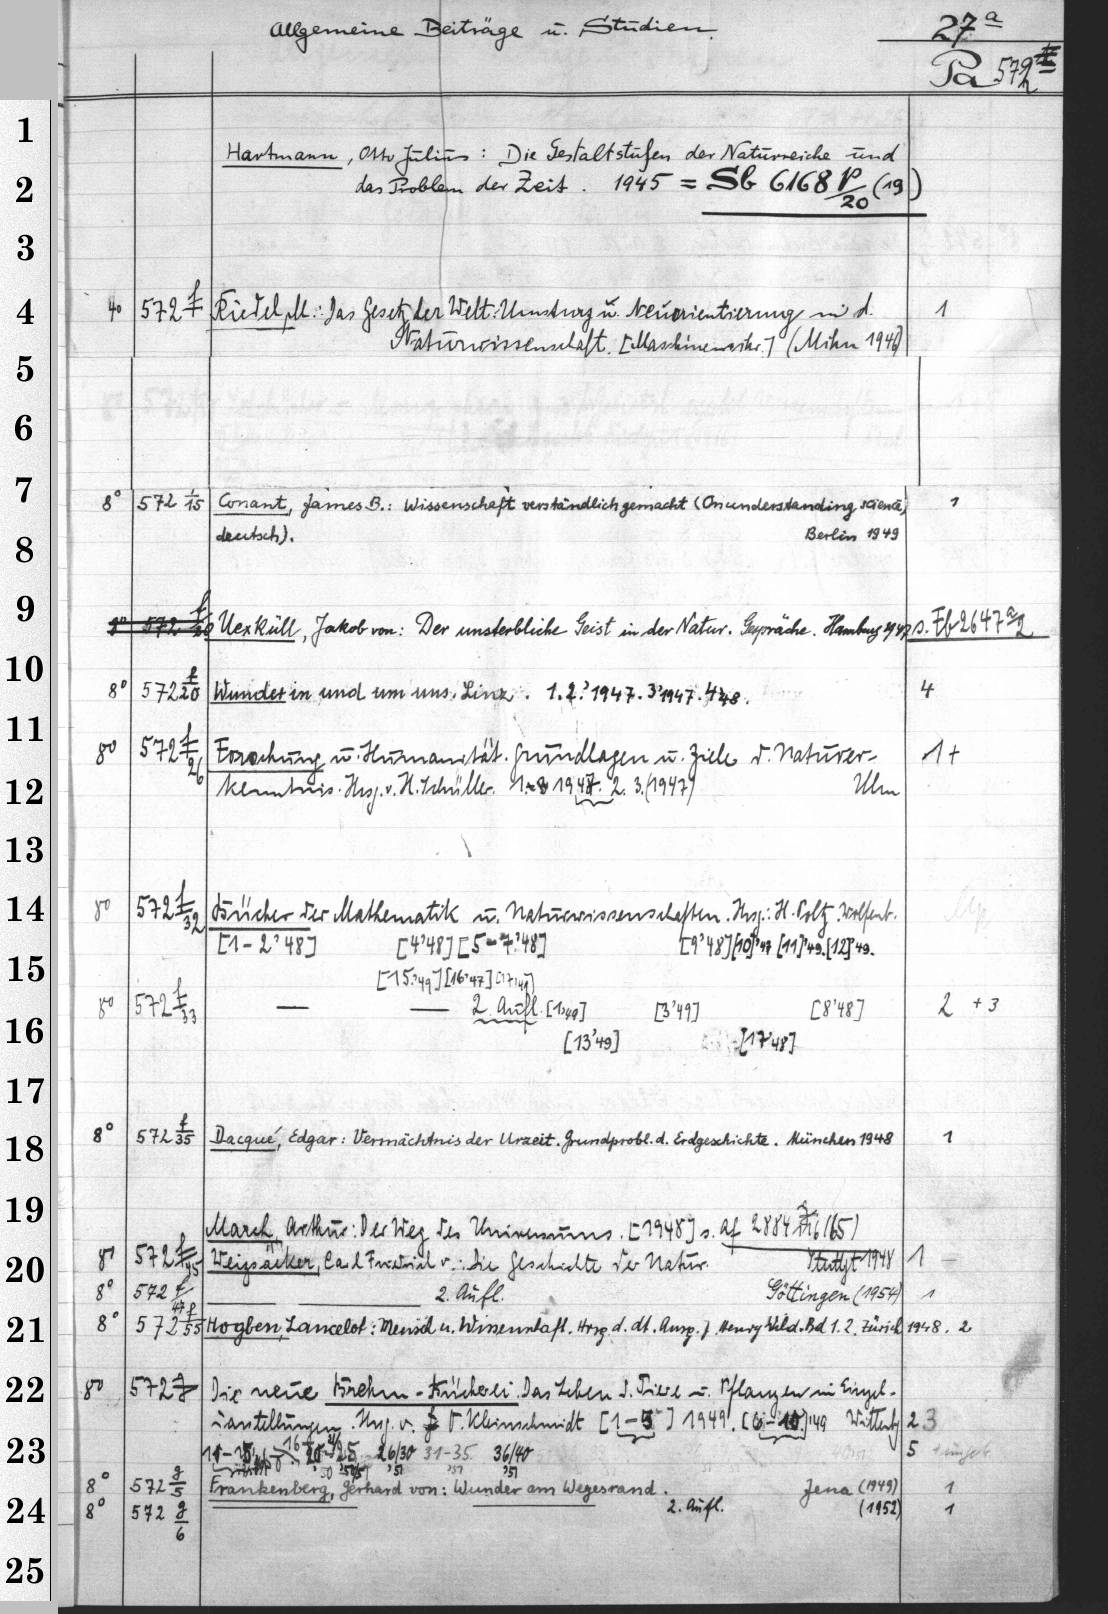 Allgemeine Beiträge u. Studien.
27 a
Pa 572 f
1
Hartmann, Otto Julius: Die Gestaltstufen der Naturreiche und
2 das Problem der Zeit. 1945 = Sb 6168 p/20 (19)
3
4 4° 572 f Riedel, M.: Das Gesetz der Welt. Umsturz u. Neuorientierung in d. 1
Naturwissenschaft. [Maschinenschr.] (Mihn 1946)
5
6
7 8° 572 f/15 Conant, James B.: Wissenschaft verständlich gemacht (On understanding science, 1
8 deutsch). Berlin 1949
9 572 f/20 Uexküll, Jakob von: Der unsterbliche Geist in der Natur. Gespräche. Hamburg 1947 s. Fb 2647 a/2
10 8° 572 f/20 Wunder in und um uns. Linz. 1.2.'1947. 3'1947. 4'48. 4
11 8° 572 f/26 Forschung u. Humanität. Grundlagen u. Ziele d. Naturer- 1+
12 kenntnis. Hrsg. v. H. Schüller. 1947. 2. 3. (1947) Ulm
13
14 8° 572 f/32 Bücher der Mathematik u. Naturwissenschaften. Hrsg.: H. Poltz. Wolfenb.
[1-2'48] [4'48] [5-7'48] [9'48] [10]'47 [11]'49. [12]'49.
15 [15.'49] [16'47] [17'48]
8° 572 f/33 — — 2. Aufl. [1'49] [3'49] [8'48] 2 +3
16 [13'49] [17'48]
17
18 8° 572 f/35 Dacqué, Edgar: Vermächtnis der Urzeit. Grundprobl. d. Erdgeschichte. München 1948 1
19
March, Arthur: Der Weg des Universums. [1948] s. Af 2884 (65)
20 8° 572 f/45 Weizsäcker, Carl Friedrich v.: Die Geschichte der Natur. Stuttgt 1948 1
8° 572 f/47 2. Aufl. Göttingen (1954) 1
21 8° 572 f/55 Hogben, Lancelot: Mensch u. Wissenschaft. Hrsg. d. dt. Ausg. Bd 1. 2. Zürich 1948. 2
22 8° 572 g Die neue Brehm-Bücherei. Das Leben d. Tiere u. Pflanzen in Einzel-
darstellungen. Hrsg. v. O. Kleinschmidt [1-5] 1949. [6-10.]'49 Wittenbg 2 3
23 26/30 '51 31-35. '51 36/40 '51 5
8° 572 g/5 Frankenberg, Gerhard von: Wunder am Wegesrand. Jena (1949) 1
24 8° 572 g/6 2. Aufl. (1952) 1
25